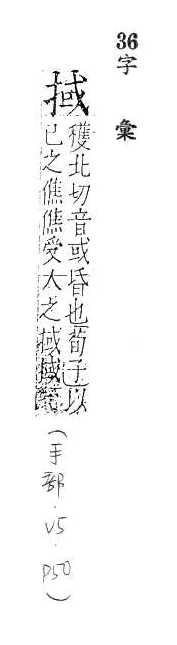 36
字彙
掝
穫北切音或昏也荀子以
已之僬僬受大之掝掝
(手部.V5.P50)